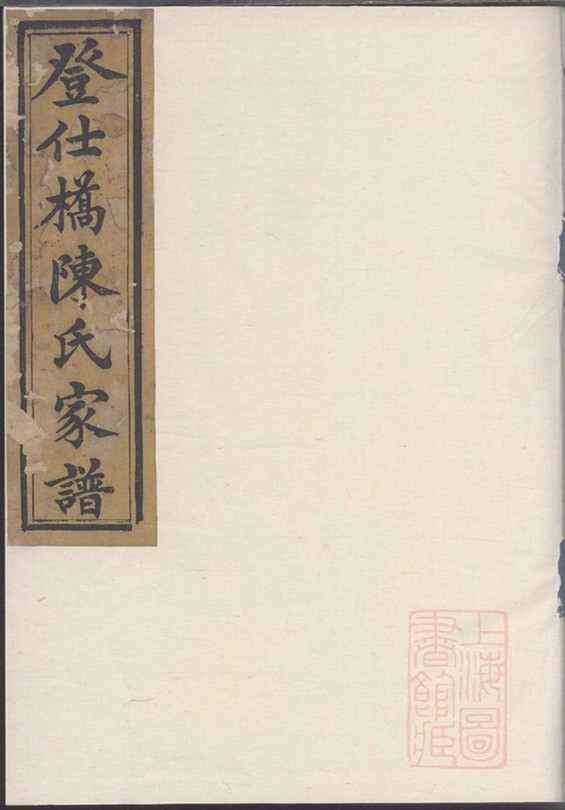 登仕橋陳氏家譜
上海圖
書館藏